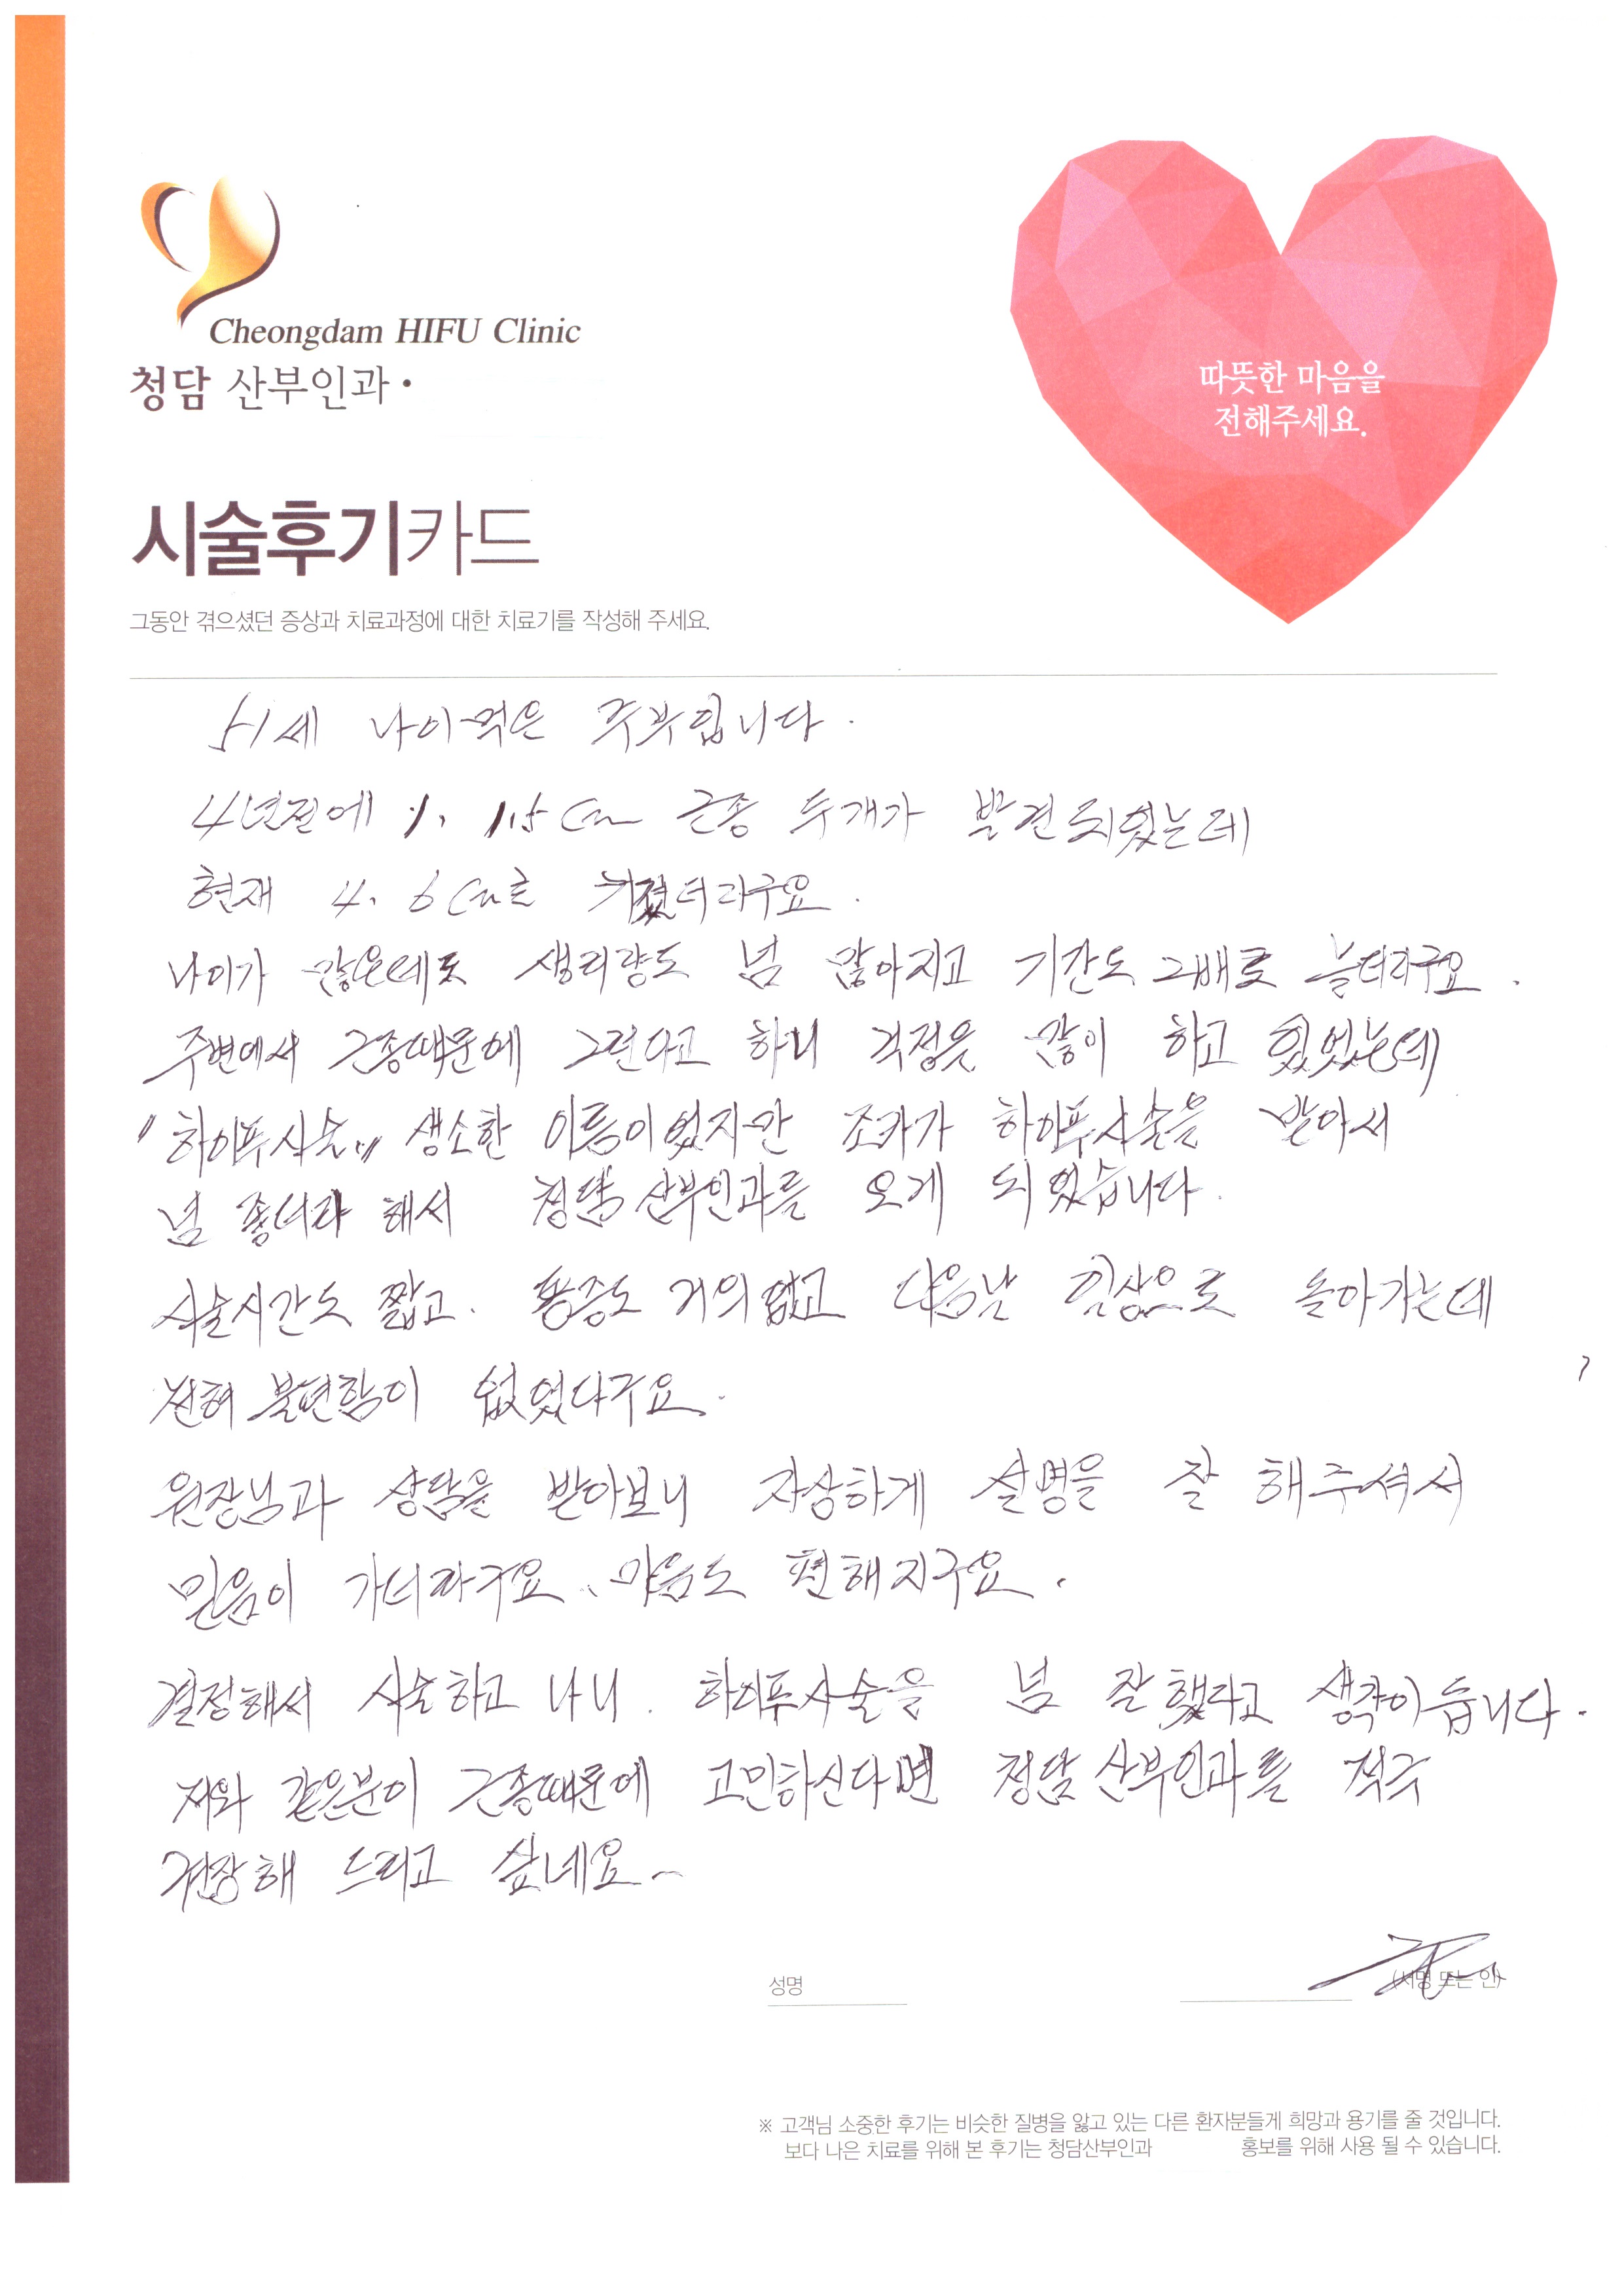 Cheongdam HIFU Clinic
청담 산부인과
따뜻한 마음을
전해주세요.
시술후기카드
그동안 겪으셨던 증상과 치료과정에 대한 치료기를 작성해 주세요.
51세 나이먹은 주부입니다.
4년전에 1, 1.5cm 근종 두개가 발견되었는데
현재 4, 6cm로 커졌더라구요.
나이가 많은데도 생리량도 넘 많아지고 기간도 그배로 늘더라구요.
주변에서 근종때문에 그런다고 하니 걱정을 많이 하고 있었는데
"하이푸시술" 생소한 이름이었지만 조카가 하이푸시술을 받아서
넘 좋더라 해서 청담산부인과를 오게 되었습니다.
시술시간도 짧고. 통증도 거의없고 다음날 일상으로 돌아가는데
전혀 불편함이 없었다구요.
원장님과 상담을 받아보니 자상하게 설명을 잘 해주셔서
믿음이 가더라구요. 마음도 편해지구요.
결정해서 시술하고 나니. 하이푸시술을 넘 잘했다고 생각이듭니다.
저와 같은분이 근종때문에 고민하신다면 청담산부인과를 적극
권장해 드리고 싶네요~
성명
(서명 또는 인)
※ 고객님 소중한 후기는 비슷한 질병을 앓고 있는 다른 환자분들게 희망과 용기를 줄 것입니다.
보다 나은 치료를 위해 본 후기는 청담산부인과 홍보를 위해 사용 될 수 있습니다.